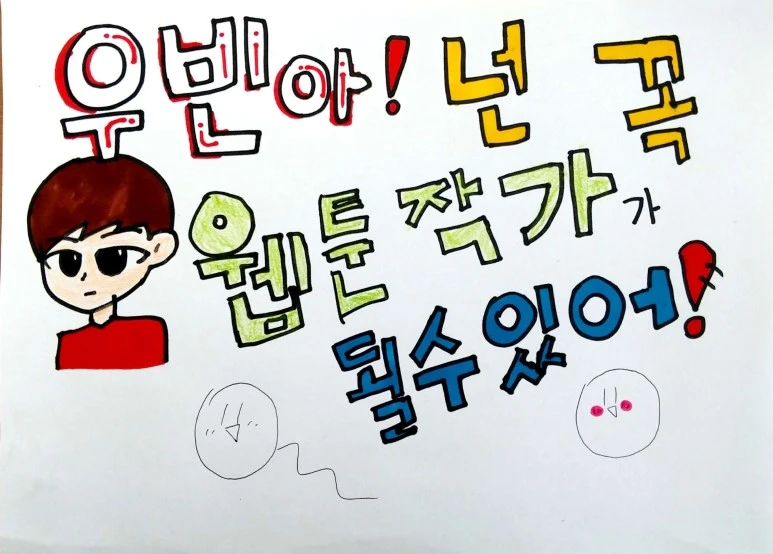 우빈아! 넌 꼭
웹툰작가가
될수있어!